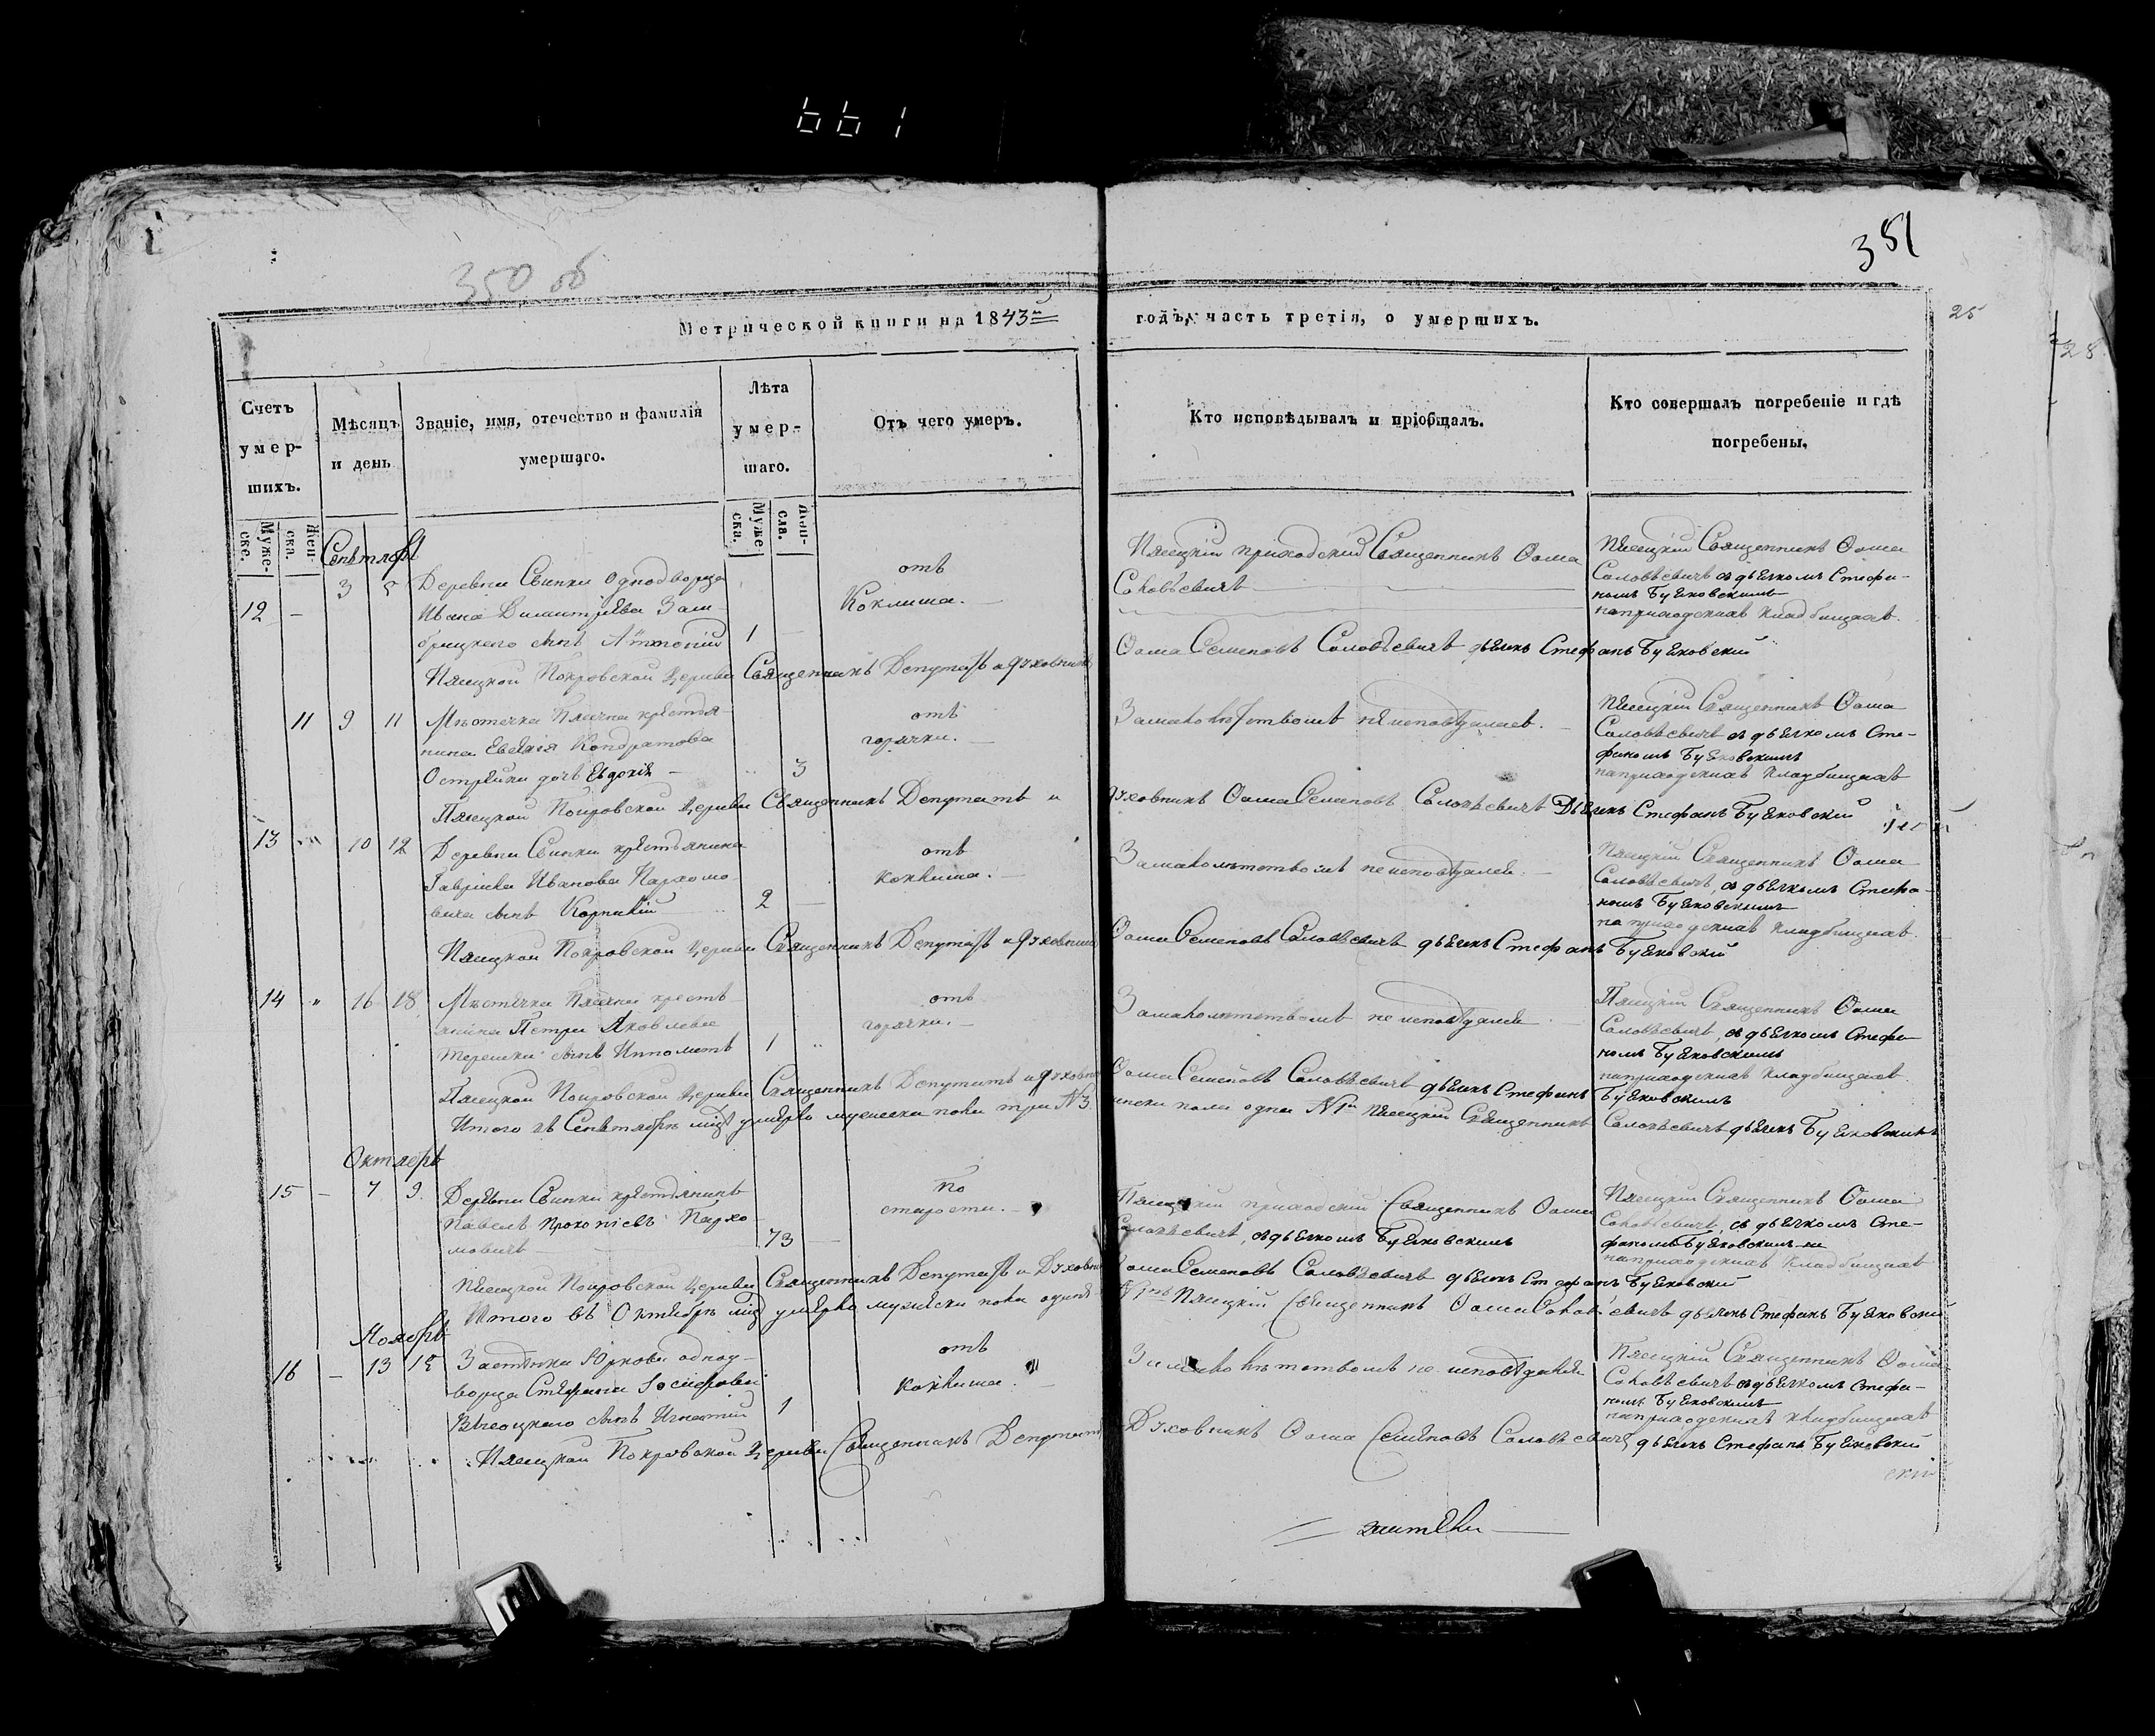 661
351
350 об
25
28
Метрической книги на 1843й годъ, часть третія, о умершихъ.
Счетъ умер-шихъ.
Мѣсяцъ и день
Званіе, имя, отечество и фамилія умершаго.
Лѣта умер-шаго.
Отъ чего умеръ.
Кто исповѣдывалъ и пріобщалъ.
Кто совершалъ погребеніе и гдѣ погребены.
Муже-ска.
Жен-ска.
Муже-ска.
Жен-ска.
Сентябрь
12 — 3 5 Деревни Свинки однодворца
Ивана Димитріева Зам-
брицкаго сынъ Антоній 1 —
отъ
Коклиша.
Пясецкій приходскій Священникъ Ѳома
Соловьевичъ
Пясецкій Священникъ Ѳома
Соловьевичъ съ дьячкомъ Стефа-
номъ Буяковскимъ
на приходскихъ кладбищахъ.
Пясецкой Покровской Церкви Священникъ Депутатъ и духовникъ Ѳома Семеновъ Соловьевичъ дьячекъ Стефанъ Буяковскій
11 9 11 Мѣстечка Пясечна крестья-
нина Кондратова
Острейки дочь Евдокія — 3
отъ
горячки.
За малолѣтствомъ не исповѣдалась.
Пясецкій Священникъ Ѳома
Соловьевичъ съ дьячкомъ Сте-
фаномъ Буяковскимъ
на приходскихъ кладбищахъ
Пясецкой Покровской Церкви Священникъ Депутатъ и духовникъ Ѳома Семеновъ Соловьевичъ Дьячекъ Стефанъ Буяковскій
13 10 12 Деревни Свинки крестьянина
Гавріила Иванова Пархомо-
вича сынъ Корнилій 2 —
отъ
коклиша.
За малолѣтствомъ не исповѣдался.
Пясецкій Священникъ Ѳома
Соловьевичъ, съ дьячкомъ Стефа-
номъ Буяковскимъ
на приходскихъ кладбищахъ.
Пясецкой Покровской Церкви Священникъ Депутатъ и духовникъ Ѳома Семеновъ Соловьевичъ дьячекъ Стефанъ Буяковскій
14 " 16 18 Мѣстечка Пясечна кресть-
янина Петра Яковлева
Терешки сынъ Ипполитъ 1 "
отъ
горячки.
За малолѣтствомъ не исповѣдался
Пясецкій Священникъ Ѳома
Соловьевичъ, съ дьячкомъ Стефа-
номъ Буяковскимъ
на приходскихъ кладбищахъ
Пясецкой Покровской Церкви Священникъ Депутатъ и духовникъ Ѳома Семеновъ Соловьевичъ дьячекъ Стефанъ Буяковскимъ
Итого въ Сентябрѣ умерло мужеска пола три №3. женска пола одна №1 Пясецкій Священникъ Соловьевичъ дьячекъ Буяковскимъ
Октябрь
15 — 7 9. Деревни Свинки крестьянинъ
Павелъ Прокопіевъ Пархо-
мовичъ 73 —
по
старости.
Пясецкій приходскій Священникъ Ѳома
Соловьевичъ, съ дьячкомъ Буяковскимъ
Пясецкій Священникъ Ѳома
Соловьевичъ, съ дьячкомъ Сте-
фаномъ Буяковскимъ на
на приходскихъ кладбищахъ
Пясецкой Покровской Церкви Священникъ Депутатъ и Духовникъ Ѳома Семеновъ Соловьевичъ дьячекъ Стефанъ Буяковскій
Итого въ Октябрѣ умерло мужеска пола одинъ №1 Пясецкій Священникъ Ѳома Соловьевичъ дьячекъ Стефанъ Буяковскій
Ноябрь
16 — 13 15 Застѣнка Юркова однод-
ворца Стефана Іосифова
Высоцкаго сынъ Игнатій 1
отъ
коклиша.
За малолѣтствомъ не исповѣдался
Пясецкій Священникъ Ѳома
Соловьевичъ съ дьячкомъ Стефа-
номъ Буяковскимъ
на приходскихъ кладбищахъ
Пясецкой Покровской Церкви Священникъ Депутатъ Духовникъ Ѳома Семеновъ Соловьевичъ дьячекъ Стефанъ Буяковскій